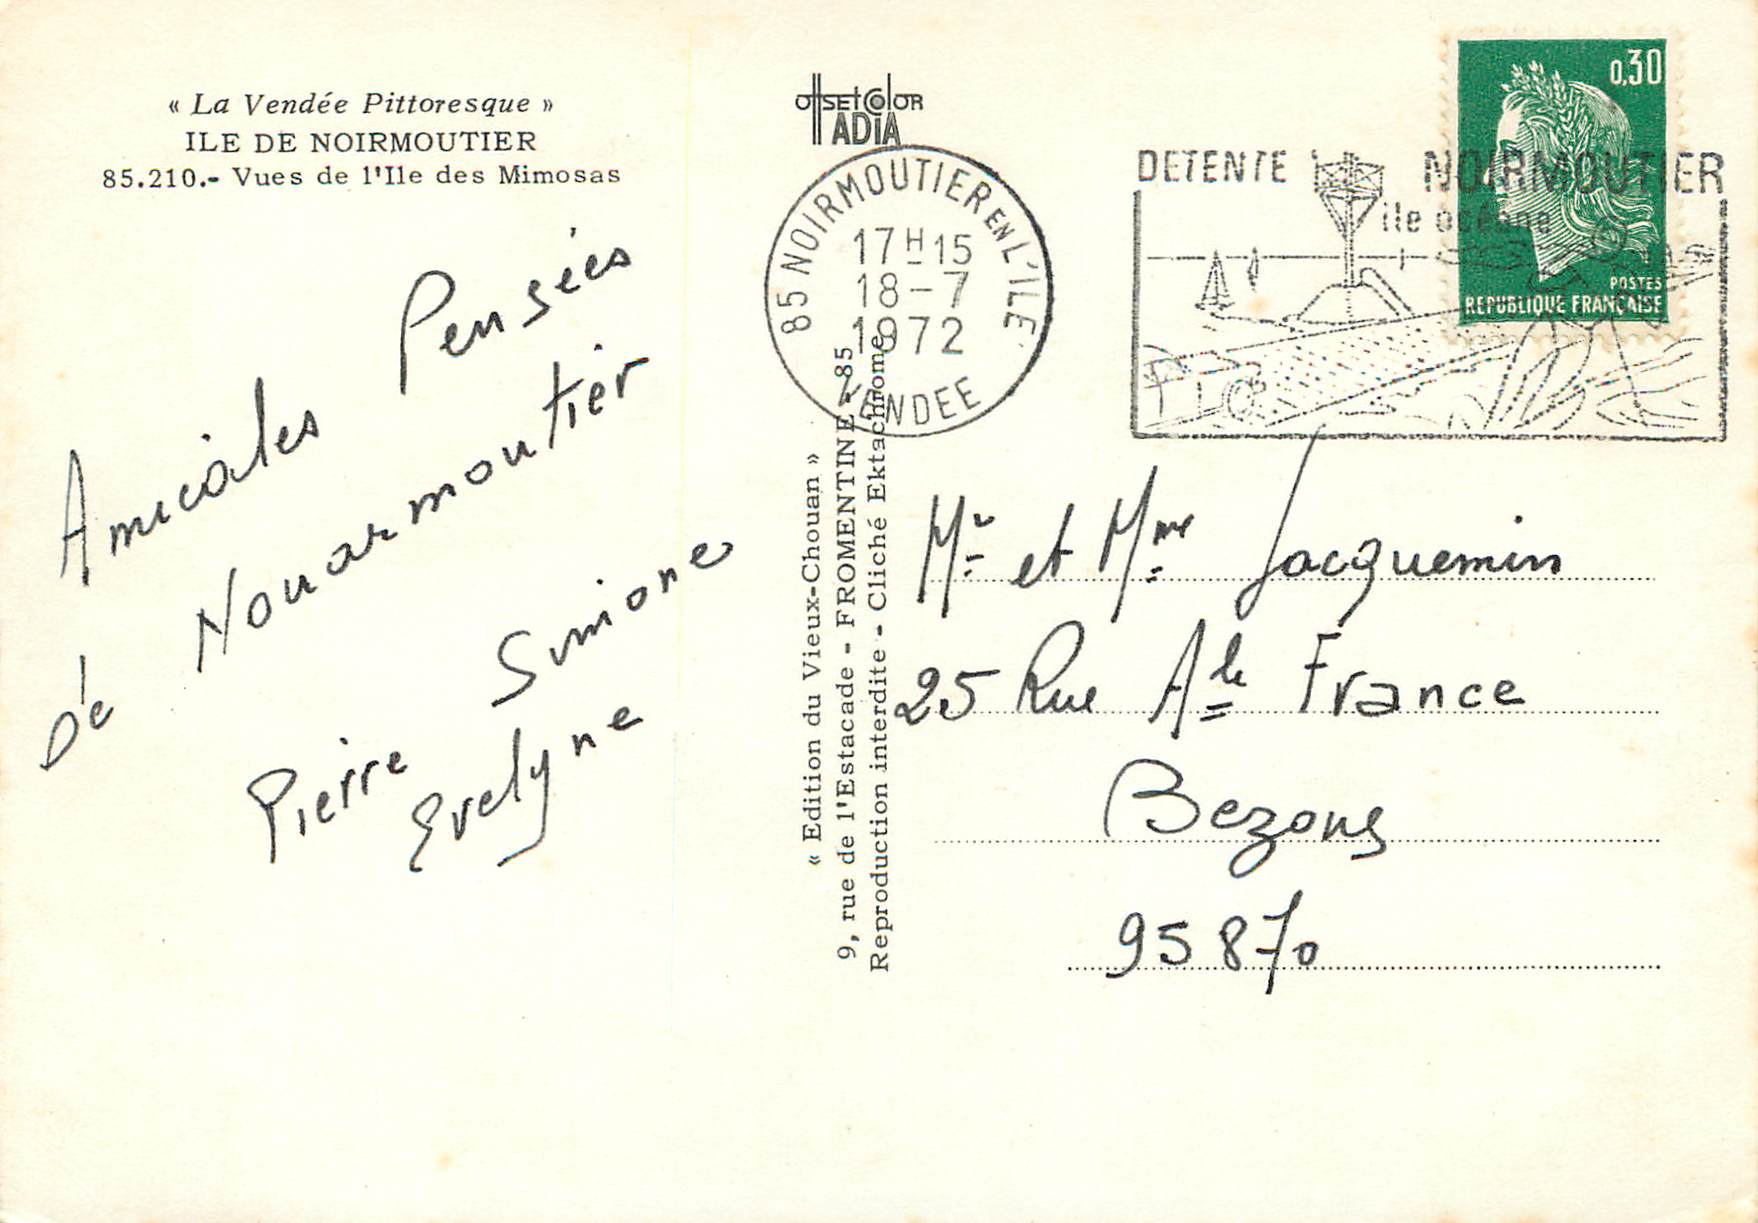 « La Vendée Pittoresque »
ILE DE NOIRMOUTIER
85.210.- Vues de l'Ile des Mimosas
Amicales Pensées
de Nouarmoutier
Simone
Pierre
Evelyne
offset color
ADIA
85 NOIRMOUTIER EN L'ILE
17H15
18-7
1972
VENDEE
DETENTE NOIRMOUTIER
ile océane
0,30
POSTES
REPUBLIQUE FRANÇAISE
« Edition du Vieux-Chouan »
9, rue de l'Estacade - FROMENTINE - 85
Reproduction interdite - Cliché Ektachrome
Mr et Mme Jacquemin
25 Rue Ale France
Bezons
95870